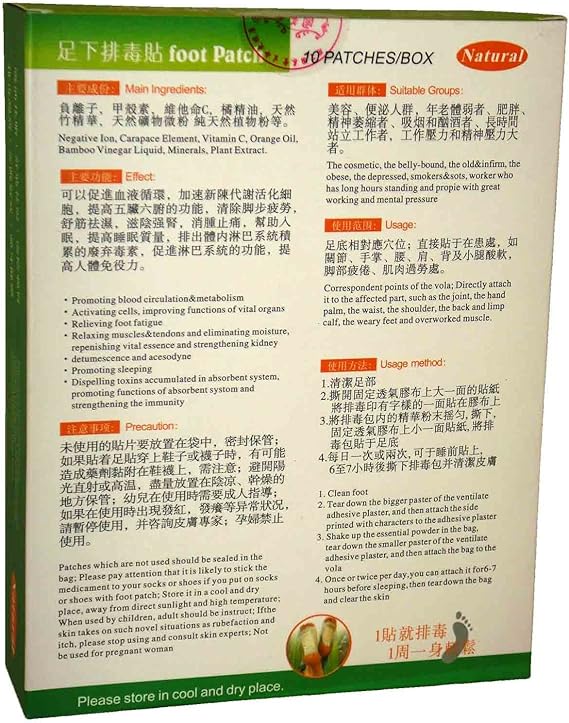 足下排毒貼 foot Patch
10 PATCHES/BOX
Natural
主要成份: Main Ingredients:
負離子、甲殼素、維他命C、橘精油、天然
竹精華、天然礦物微粉 純天然植物粉等。
Negative Ion, Carapace Element, Vitamin C, Orange Oil,
Bamboo Vinegar Liquid, Minerals, Plant Extract.
主要功能: Effect:
可以促進血液循環，加速新陳代謝活化細
胞，提高五臟六腑的功能，清除脚步疲勞，
舒筋祛濕，滋陰强腎，消腫止痛，幫助入
眠，提高睡眠質量，排出體内淋巴系統積
累的廢弃毒素，促進淋巴系統的功能，提
高人體免疫力。
• Promoting blood circulation&metabolism
• Activating cells, improving functions of vital organs
• Relieving foot fatigue
• Relaxing muscles&tendons and eliminating moisture,
repenishing vital essence and strengthening kidney
• detumescence and acesodyne
• Promoting sleeping
• Dispelling toxins accumulated in absorbent system,
promoting functions of absorbent system and
strengthening the immunity
注意事項: Precaution:
未使用的貼片要放置在袋中，密封保管；
如果貼着足貼穿上鞋子或襪子時，有可能
造成藥劑黏附在鞋襪上，需注意；避開陽
光直射或高温，盡量放置在陰凉、幹燥的
地方保管；幼兒在使用時需要成人指導；
如果在使用時出現發紅，發癢等异常狀况，
請暫停使用，并咨詢皮膚專家；孕婦禁止
使用。
Patches which are not used should be sealed in the
bag; Please pay attention that it is likely to stick the
medicament to your socks or shoes if you put on socks
or shoes with foot patch; Store it in a cool and dry
place, away from direct sunlight and high temperature;
When used by children, adult should be instruct; Ifthe
skin takes on such novel situations as rubefaction and
itch, please stop using and consult skin experts; Not
be used for pregnant woman
適用群体: Suitable Groups:
美容、便泌人群，年老體弱者、肥胖、
精神萎縮者、吸烟和酗酒者、長時間
站立工作者，工作壓力和精神壓力大
者。
The cosmetic, the belly-bound, the old&infirm, the
obese, the depressed, smokers&sots, worker who
has long hours standing and propie with great
working and mental pressure
使用范圍: Usage:
足底相對應穴位；直接貼于在患處，如
關節、手掌、腰、肩、背及小腿酸軟，
脚部疲倦、肌肉過勞處。
Correspondent points of the vola; Directly attach
it to the affected part, such as the joint, the hand
palm, the waist, the shoulder, the back and limp
calf, the weary feet and overworked muscle.
使用方法: Usage method:
1.清潔足部
2.撕開固定透氣膠布上大一面的貼紙
將排毒印有字樣的一面貼在膠布上
3.將排毒包内的精華粉末摇匀，撕下，
固定透氣膠布上小一面貼紙，將排
毒包貼于足底
4.每日一次或兩次，可于睡前貼上，
6至7小時後撕下排毒包并清潔皮膚
1. Clean foot
2. Tear down the bigger paster of the ventilate
adhesive plaster, and then attach the side
printed with characters to the adhesive plaster
3. Shake up the essential powder in the bag,
tear down the smaller paster of the ventilate
adhesive plaster, and then attach the bag to the
vola
4. Once or twice per day,you can attach it for6-7
hours before sleeping, then tear down the bag
and clear the skin
1貼就排毒
1周一身輕鬆
Please store in cool and dry place.